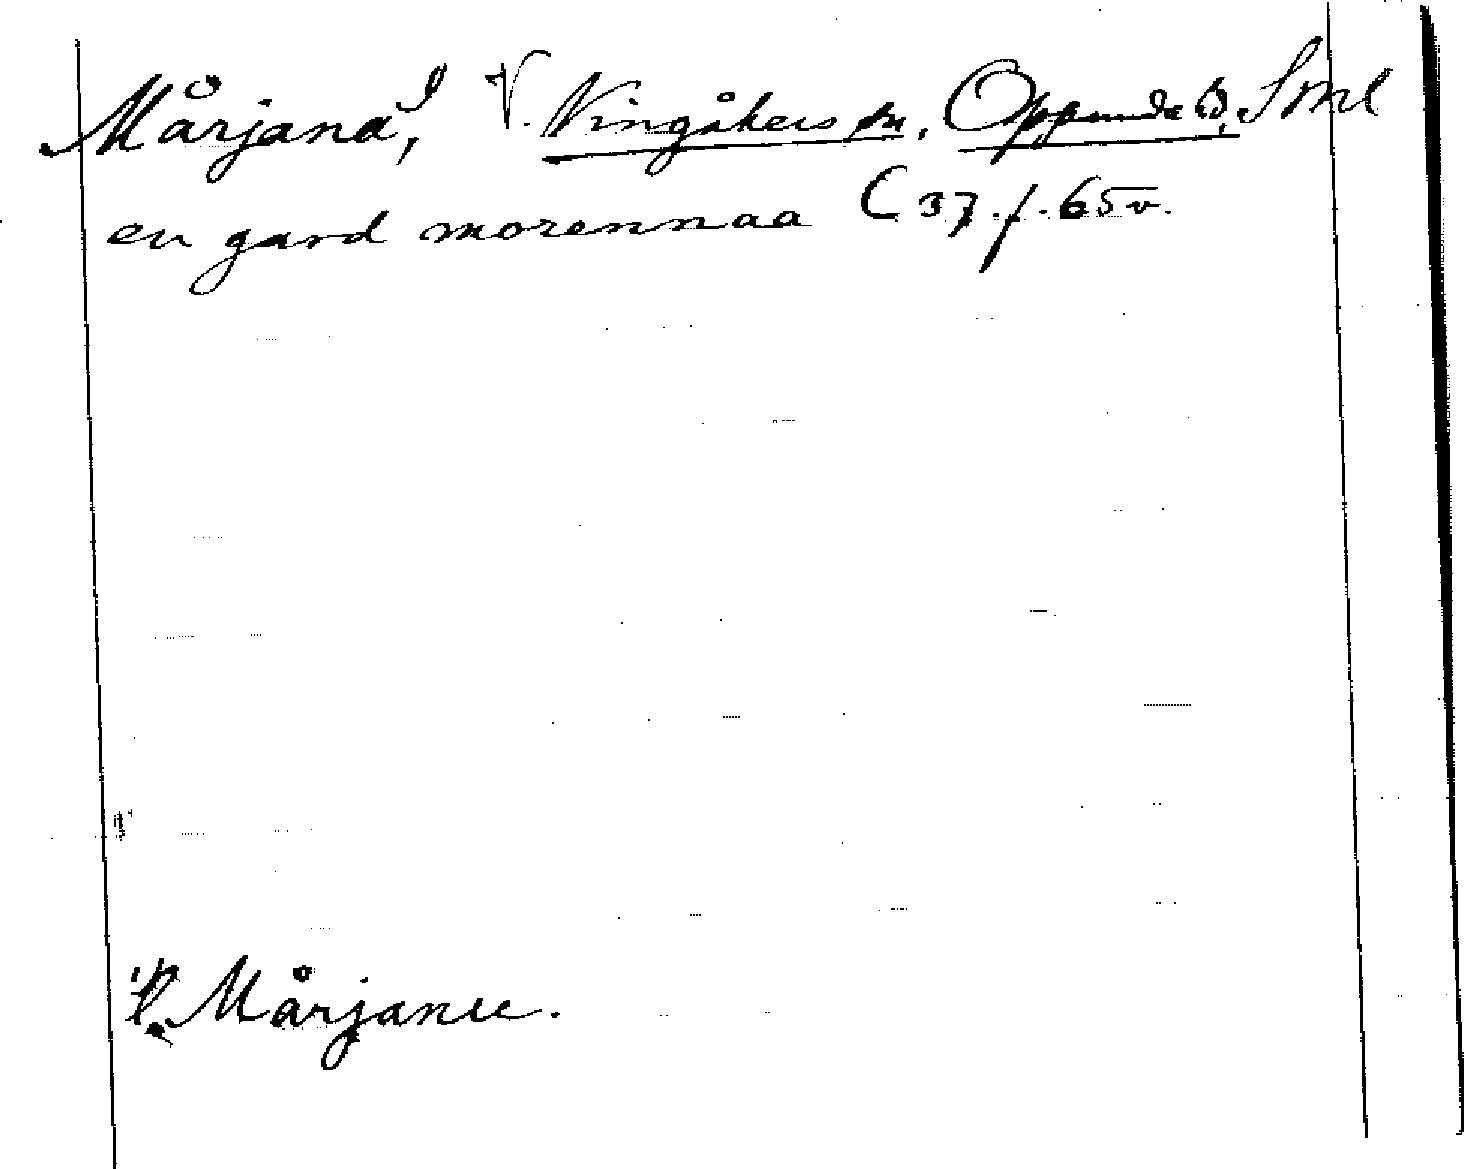 Mårjana, V. Vingåkers sn, Oppunda hd, Sml
en gard morennaa C 37. f. 65v.
Mårjanu.